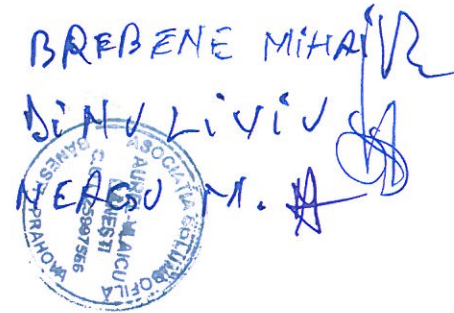 BREBENE MiHAi
DiNU LiViU
NEAGU M.
ASOCIAȚIA COLUMBOFILA
AUREL VLAICU
BANESTI
BANESTI - PRAHOVA